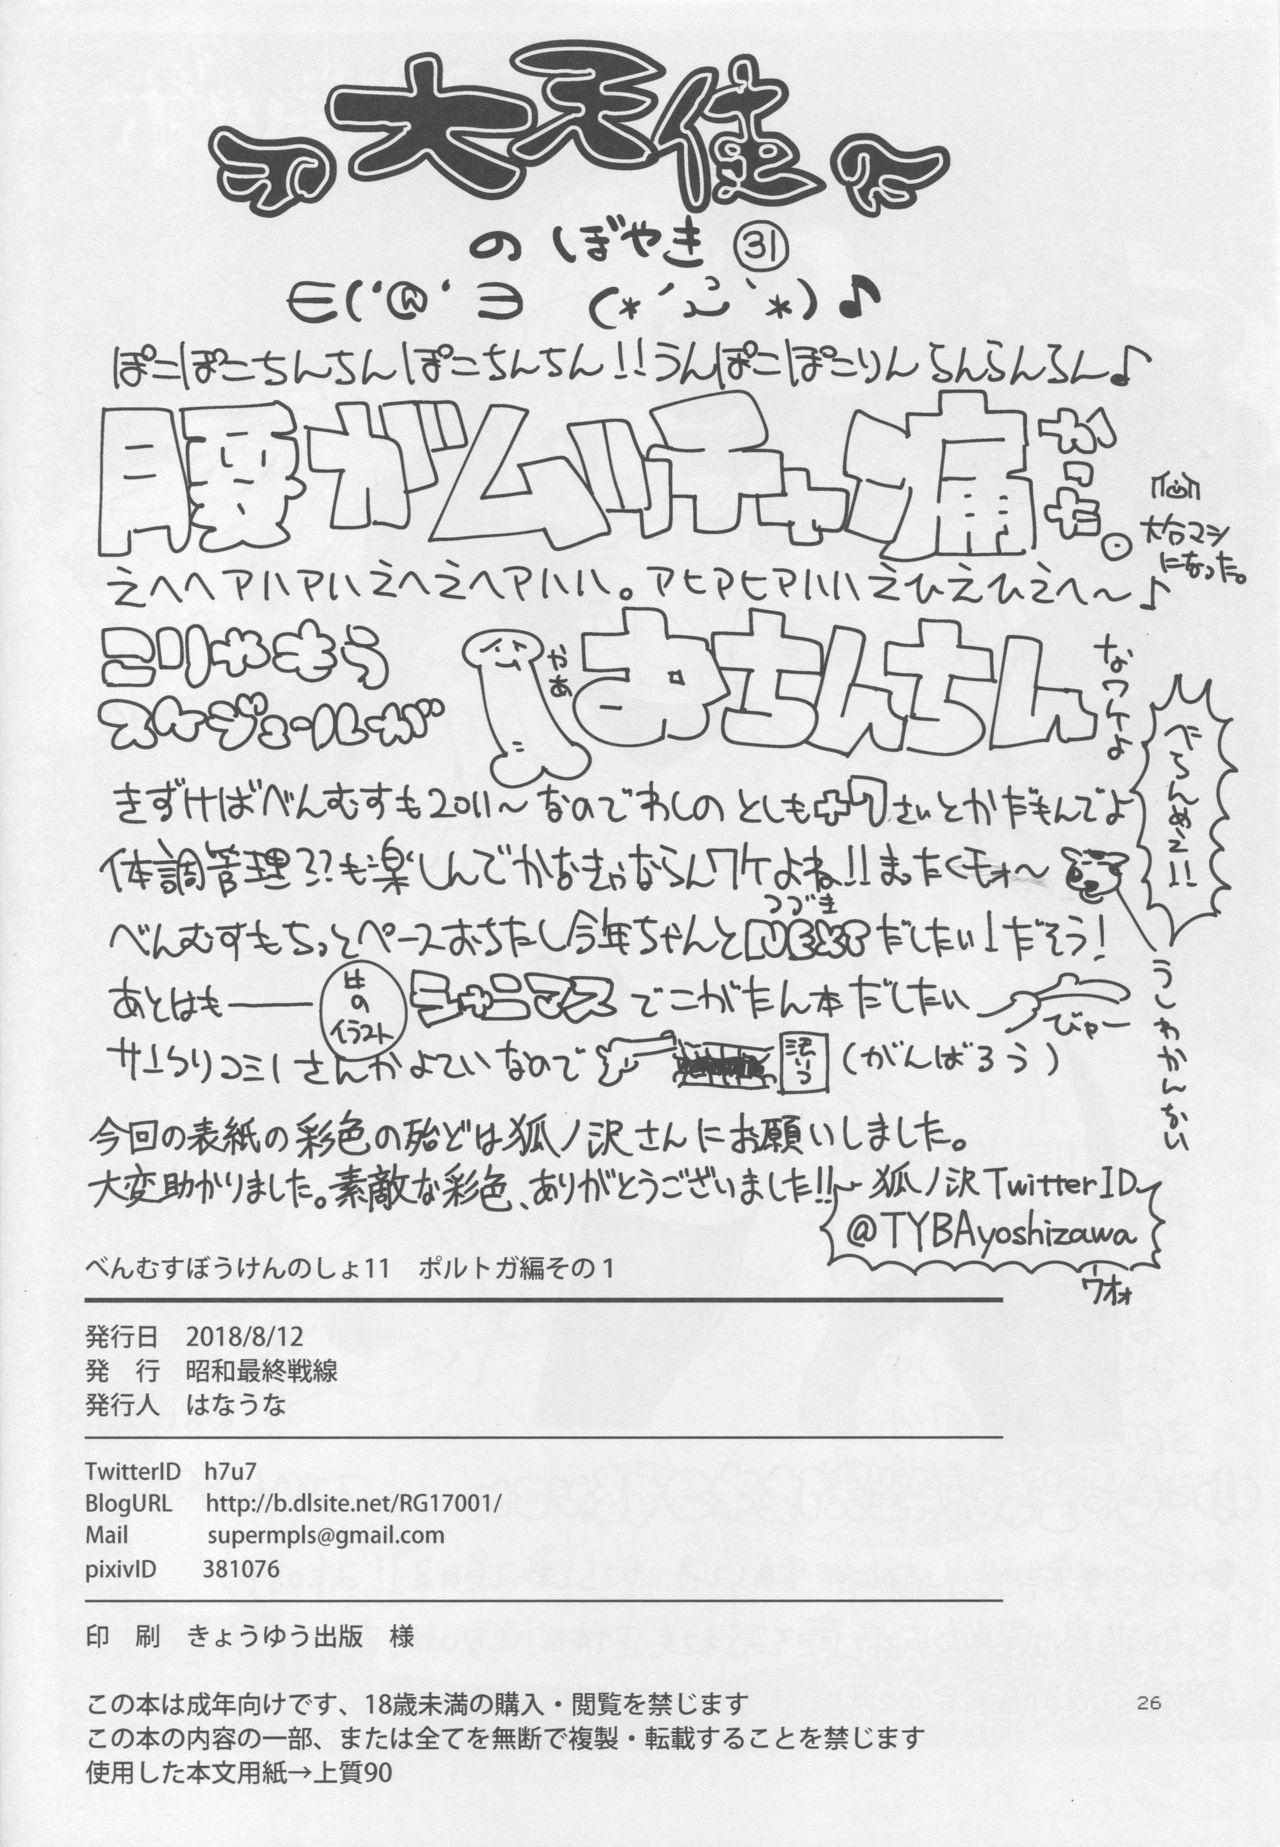 大天使
のぼやき ㉛
ぽこぽこちんちんぽこちんちん!!うんぽこぽこりんらんらんらん♪
腰がムッチャ痛かった。
大分マシになった。
えヘヘアハアハえヘえヘアハハ。アヒアヒアハハえひえひえへ〜♪
こりゃもう
スケジュールが
やあ
おちんちん
なワケよ
べらんめえ!!
きずけばべんむすも2011〜なのでわしのとしも
さいとかだもんでよ
体調管理??も楽しんでかなきゃならんワケよね!!まったくモォ〜
うしわかんない
べんむすもちっとペースおちたし今年ちゃんとNEXTだしたい!だそう!
つづき
あとはも──
のイラスト
シャニマスでこがたん本だしたい
びゃー
さんかよていなので
(がんばろう)
今回の表紙の彩色の殆どは狐ノ沢さんにお願いしました。
大変助かりました。素敵な彩色、ありがとうございました!!
狐ノ沢TwitterID
@TYBAyoshizawa
ウオォ
べんむすぼうけんのしょ11　ポルトガ編その１
発行日　2018/8/12
発　行　昭和最終戦線
発行人　はなうな
TwitterID　h7u7
BlogURL　http://b.dlsite.net/RG17001/
Mail　supermpls@gmail.com
pixivID　381076
印　刷　きょうゆう出版　様
この本は成年向けです、18歳未満の購入・閲覧を禁じます
この本の内容の一部、または全てを無断で複製・転載することを禁じます
使用した本文用紙→上質90
26